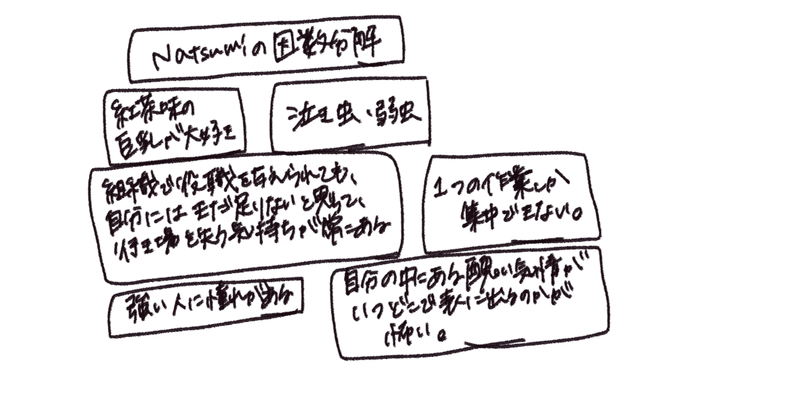 Natsumiの因数分解
紅茶味の
巨乳が大好き
泣き虫・弱虫
組織で役職を与えられても、
自分にはまだ足りないと思って、
行き場を失う気持ちが常にある
1つの作業しか
集中できない。
強い人に憧れがある
自分の中にある醜い気情が
いつどこで表に出るのかが
怖い。